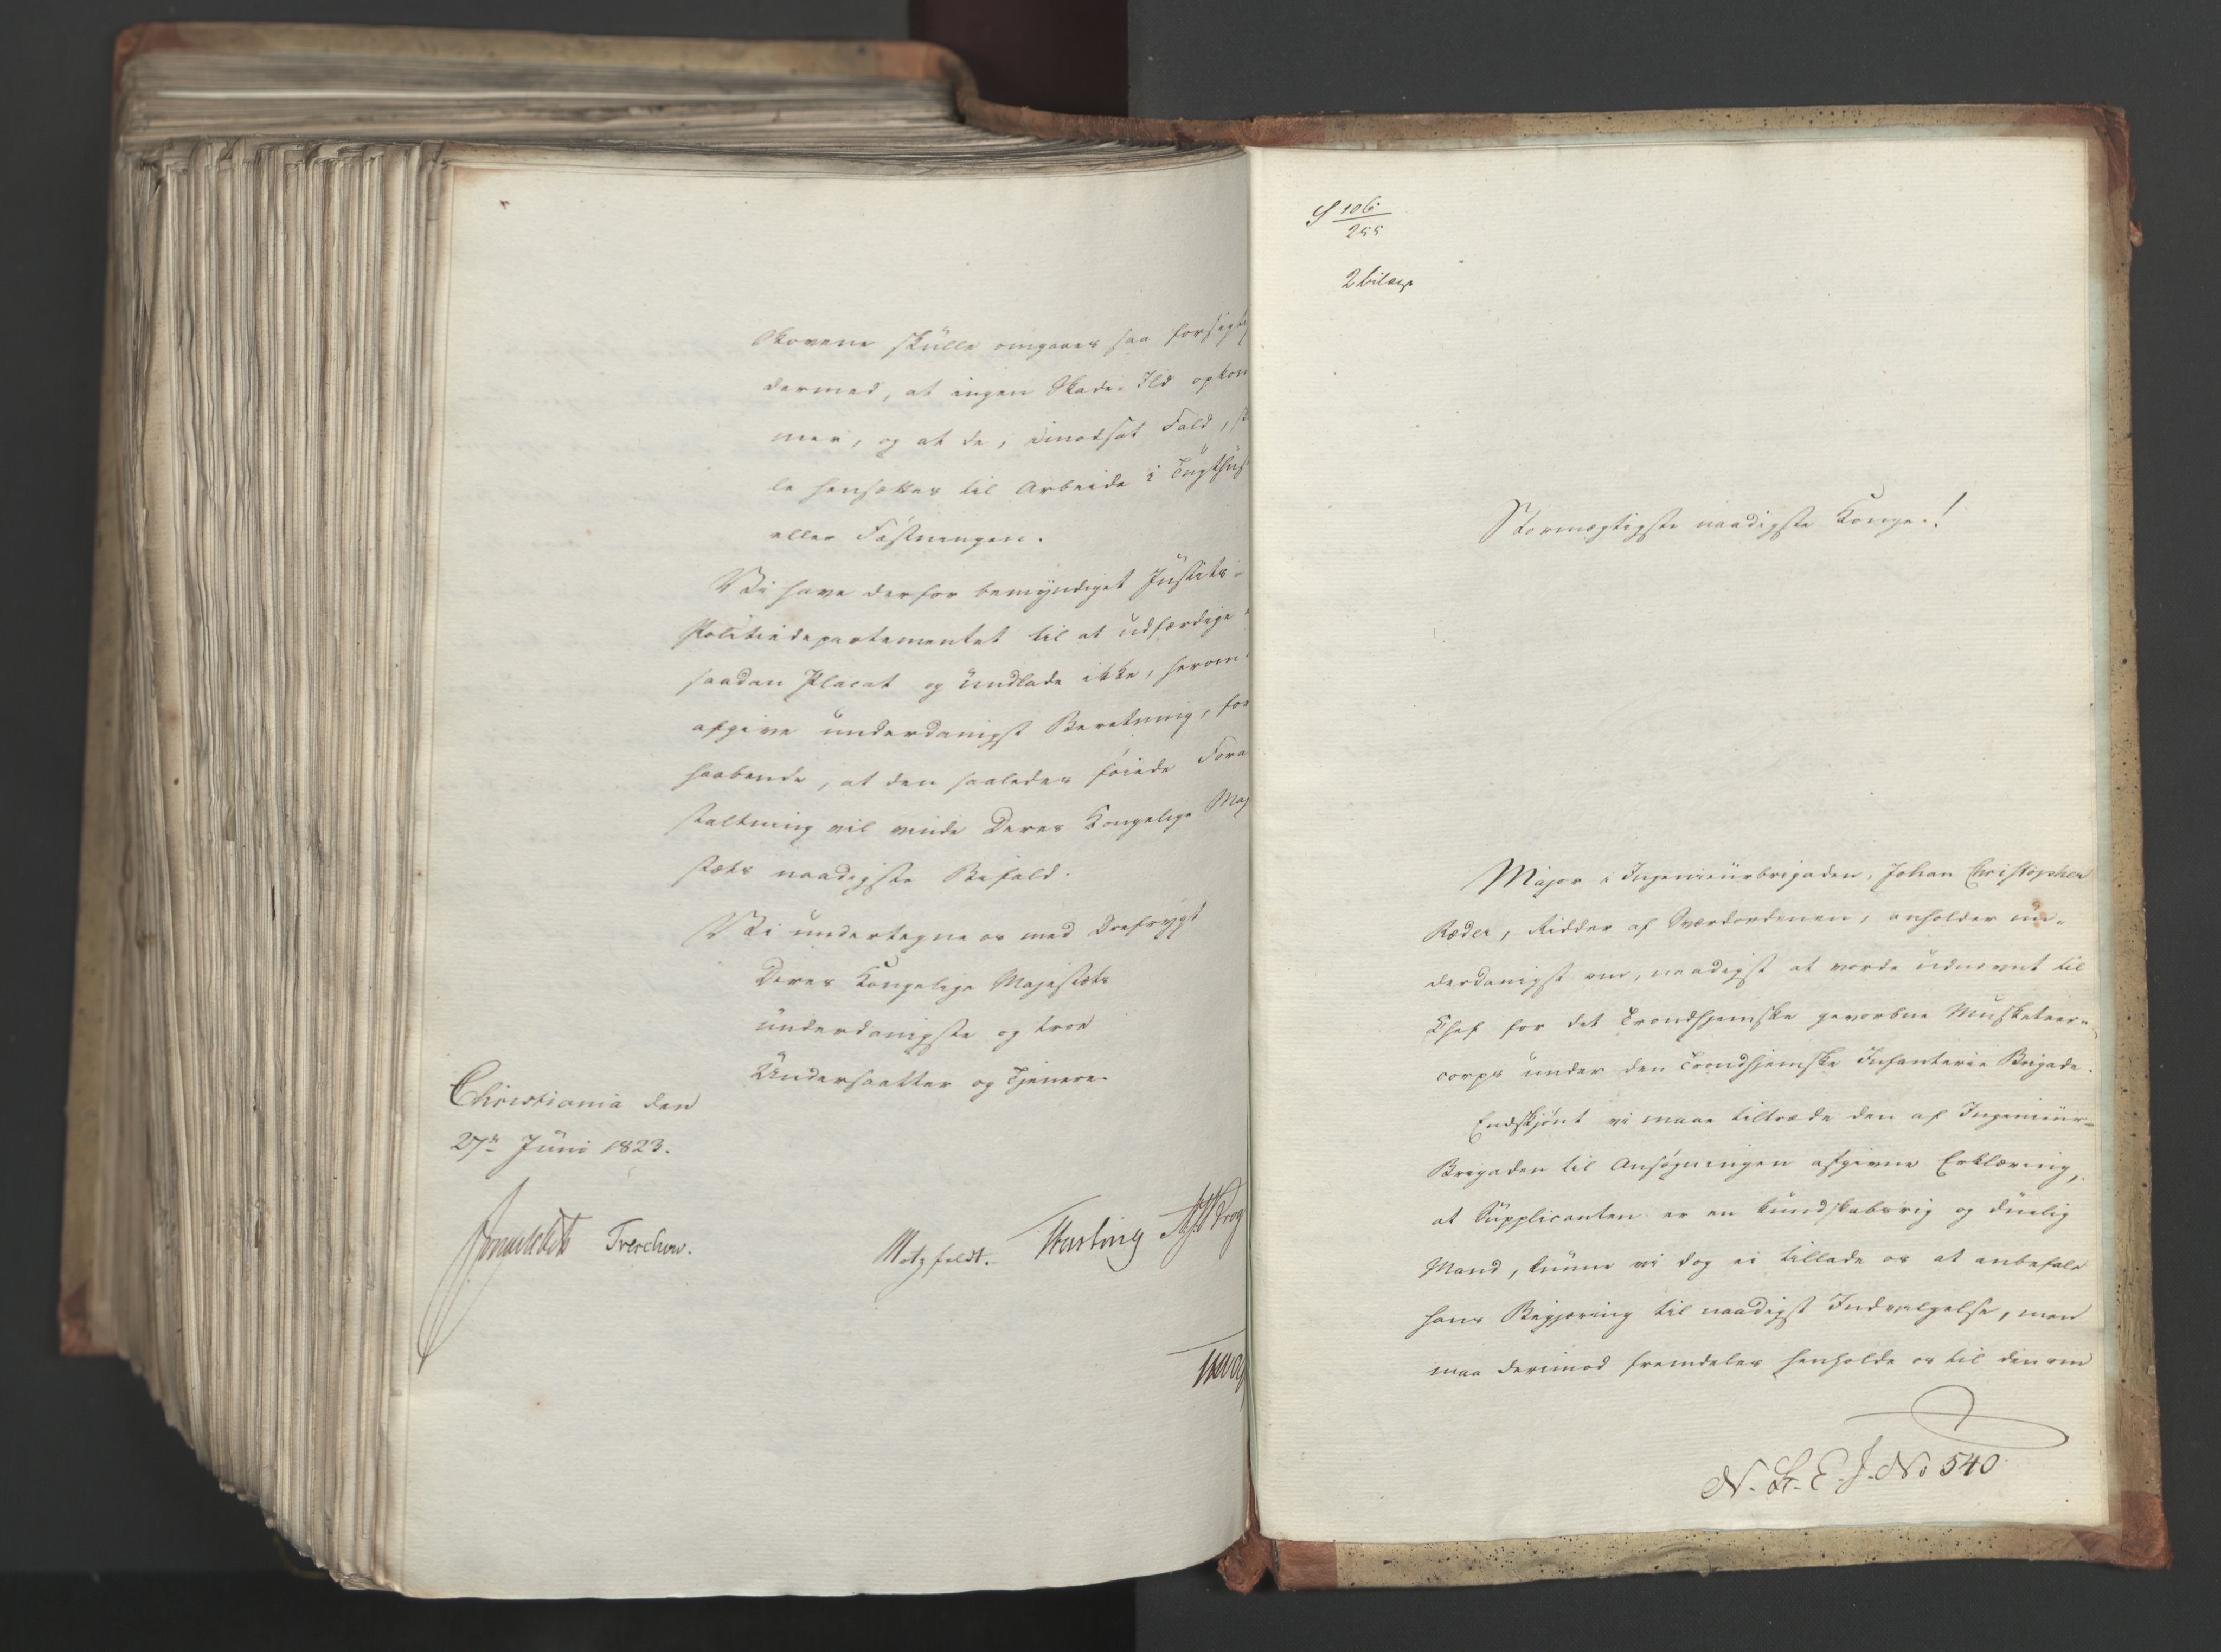 Skovene skulle omgaaes saa forsigti
dermed, at ingen Skade-Ild opkom
mer, og at de, i modsat Fald, s
le hensættes til Arbeide i Tugthus
eller Fæstningen.
Vi have derfor bemyndiget Justits-
Politiedepartementet til at udfærdige
saadan Placat og undlade ikke, herom
afgive underdanigst Beretning, for
haabende, at den saaledes føiede Fora
staltning vil vinde Deres Kongelige Maj
stæts naadigste Bifald.
Vi undertegne os med Ærefrygt
Deres Kongelige Majestæts
underdanigste og troe
Undersaatter og Tjenere
Christiania den
27de Juni 1823.
Sommerhielm Treschow.
Motzfeldt. Fasting Krog
S 106
255
2 bilag
Stormægtigste naadigste Konge!
Major i Ingenieurbrigaden, Johan Christopher
Ræder, Ridder af Sværdordenen, anholder un-
derdanigst om, naadigst at vorde udnævnt til
Chef for det Trondhjemske gevorbne Musketeer-
corps under den Trondhjemske Infanterie Brigade.
Endskjönt vi maae tiltræde den af Ingenieur-
Brigaden til Ansøgningen afgivne Erklæring,
at Supplicanten er en kundskabsrig og duelig
Mand, kunne vi dog ei tillade os at anbefale
hans Begjæring til naadigst Indvilgelse, men
maa derimod fremdeles henholde os til den om
N. St. E. J. No 540